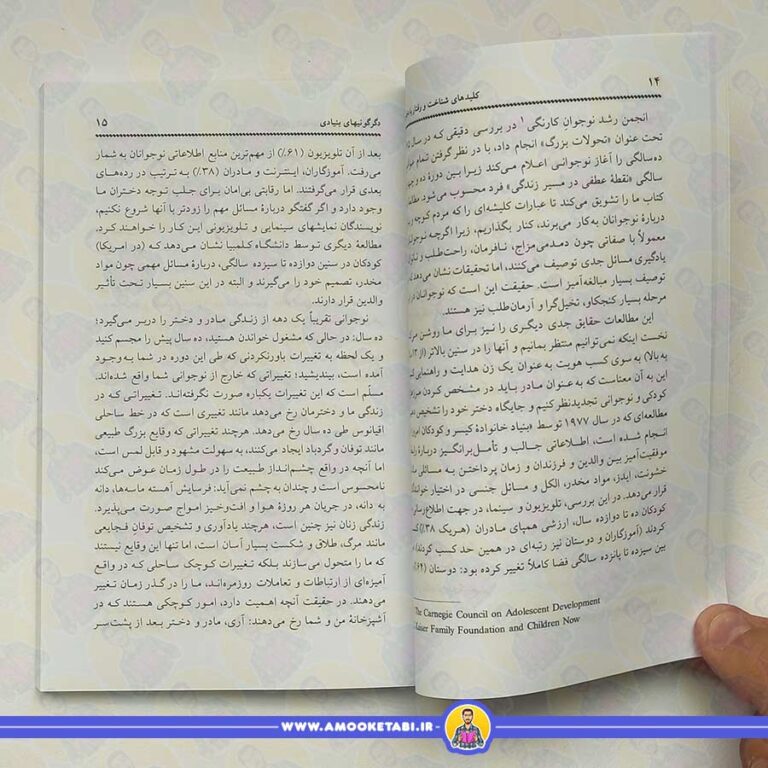 ۱۴
کلیدهای شناخت و رفتار با
انجمن رشد نوجوان کارنگی ۱ در بررسی دقیقی که در سال
تحت عنوان «تحولات بزرگ» انجام داد، با در نظر گرفتن تمام
ده‌سالگی را آغاز نوجوانی اعلام می‌کند زیرا بین دورهٔ ده و
سالگی «نقطهٔ عطفی در مسیر زندگی» فرد محسوب می‌شود.
کتاب ما را تشویق می‌کند تا عبارات کلیشه‌ای را که مردم کوچه و
دربارهٔ نوجوانان به‌کار می‌برند، کنار بگذاریم، زیرا اگرچه
معمولاً با صفاتی چون دمدمی‌مزاج، نافرمان، راحت‌طلب و
یادگیری مسائل جدی توصیف می‌کنند، اما تحقیقات نشان می‌دهد
توصیف بسیار مبالغه‌آمیز است. حقیقت این است که نوجوانان در
مرحله بسیار کنجکاو، تخیل‌گرا و آرمان‌طلب نیز هستند.
این مطالعات حقایق جدی دیگری را نیز برای ما روشن
نخست اینکه نمی‌توانیم منتظر بمانیم و آنها را در سنین بالاتر (از
به بالا) به سوی کسب هویت به عنوان یک زن هدایت و راهنمایی
این به آن معناست که به عنوان مادر باید در مشخص کردن
کودکی و نوجوانی تجدیدنظر کنیم و جایگاه دختر خود را تشخیص
مطالعه‌ای که در سال ۱۹۷۷ توسط «بنیاد خانوادهٔ کیسر و کودکان
انجام شده است، اطلاعاتی جالب و تأمل‌برانگیز دربارهٔ
موفقیت‌آمیز بین والدین و فرزندان و زمان پرداختن به مسائلی
خشونت، ایدز، مواد مخدر، الکل و مسائل جنسی در اختیار
قرار می‌دهد. در این بررسی، تلویزیون و سینما، در جهت
کودکان ده تا دوازده سال، ارزشی همپای مادران (هریک ۳۸٪)
کردند (آموزگاران و دوستان نیز رتبه‌ای در همین حد کسب کردند)
بین سیزده تا پانزده سالگی فضا کاملاً تغییر کرده بود: دوستان (۶۴٪)
The Carnegie Council on Adolescent Development
Kaiser Family Foundation and Children Now
دگرگونیهای بنیادی
۱۵
بعد از آن تلویزیون (۶۱٪) از مهم‌ترین منابع اطلاعاتی نوجوانان به شمار
می‌رفت. آموزگاران، اینترنت و مادران (۳۸٪) به ترتیب در رده‌های
بعدی قرار می‌گرفتند. اما رقابتی بی‌امان برای جلب توجه دختران ما
وجود دارد و اگر گفتگو دربارهٔ مسائل مهم را زودتر با آنها شروع نکنیم،
نویسندگان نمایشهای سینمایی و تلویزیونی این کار را خواهند کرد.
مطالعهٔ دیگری توسط دانشگاه کلمبیا نشان می‌دهد که (در امریکا)
کودکان در سنین دوازده تا سیزده سالگی، دربارهٔ مسائل مهمی چون مواد
مخدر، تصمیم خود را می‌گیرند و البته در این سنین بسیار تحت تأثیر
والدین قرار دارند.
نوجوانی تقریباً یک دهه از زندگی مادر و دختر را دربر می‌گیرد؛
ده سال: در حالی که مشغول خواندن هستید، ده سال پیش را مجسم کنید
و یک لحظه به تغییرات باورنکردنی که طی این دوره در شما به‌وجود
آمده است، بیندیشید؛ تغییراتی که خارج از نوجوانی شما واقع شده‌اند.
مسلّم است که این تغییرات یکباره صورت نگرفته‌اند. تغییراتی که در
زندگی ما و دخترمان رخ می‌دهد مانند تغییری است که در خط ساحلی
اقیانوس طی ده سال رخ می‌دهد. هرچند تغییراتی که وقایع بزرگ طبیعی
مانند توفان و گردباد ایجاد می‌کنند، به سهولت مشهود و قابل لمس است،
اما آنچه در واقع چشم‌انداز طبیعت را در طول زمان عوض می‌کند
نامحسوس است و چندان به چشم نمی‌آید: فرسایش آهسته ماسه‌ها، دانه
به دانه، در جریان هر روزهٔ هوا و افت‌وخیز امواج صورت می‌پذیرد.
زندگی زنان نیز چنین است، هرچند یادآوری و تشخیص توفان فجایعی
مانند مرگ، طلاق و شکست بسیار آسان است، اما تنها این وقایع نیستند
که ما را متحول می‌سازند بلکه تغییرات کوچک ساحلی که در واقع
آمیزه‌ای از ارتباطات و تعاملات روزمره‌اند، ما را در گذر زمان تغییر
می‌دهند. در حقیقت آنچه اهمیت دارد، امور کوچکی هستند که در
آشپزخانهٔ من و شما رخ می‌دهند: آری، مادر و دختر بعد از پشت‌سر
WWW.AMOOKETABI.IR